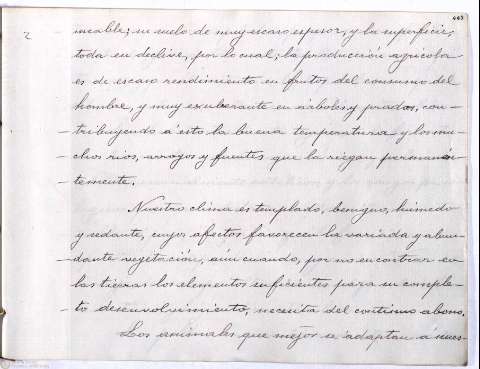 443
2
meable; su suelo de muy escaso espesor, y la superficie,
toda en declive, por lo cual; la producción agrícola
es de escaso rendimiento en frutos del consumo del
hombre, y muy exuberante en árboles y prados, con-
tribuyendo a esto la buena temperatura y los mu-
chos rios, arroyos y fuentes que la riegan permanen-
temente.
Nuestro clima es templado, benigno, húmedo
y sedante, cuyos afectos favorecen la variada y abun-
dante vegetación, aún cuando, por no encontrar en
las tierras los elementos suficientes para su comple-
to desenvolvimiento, necesita del continuo abono.
Los animales que mejor se adaptan á nues-